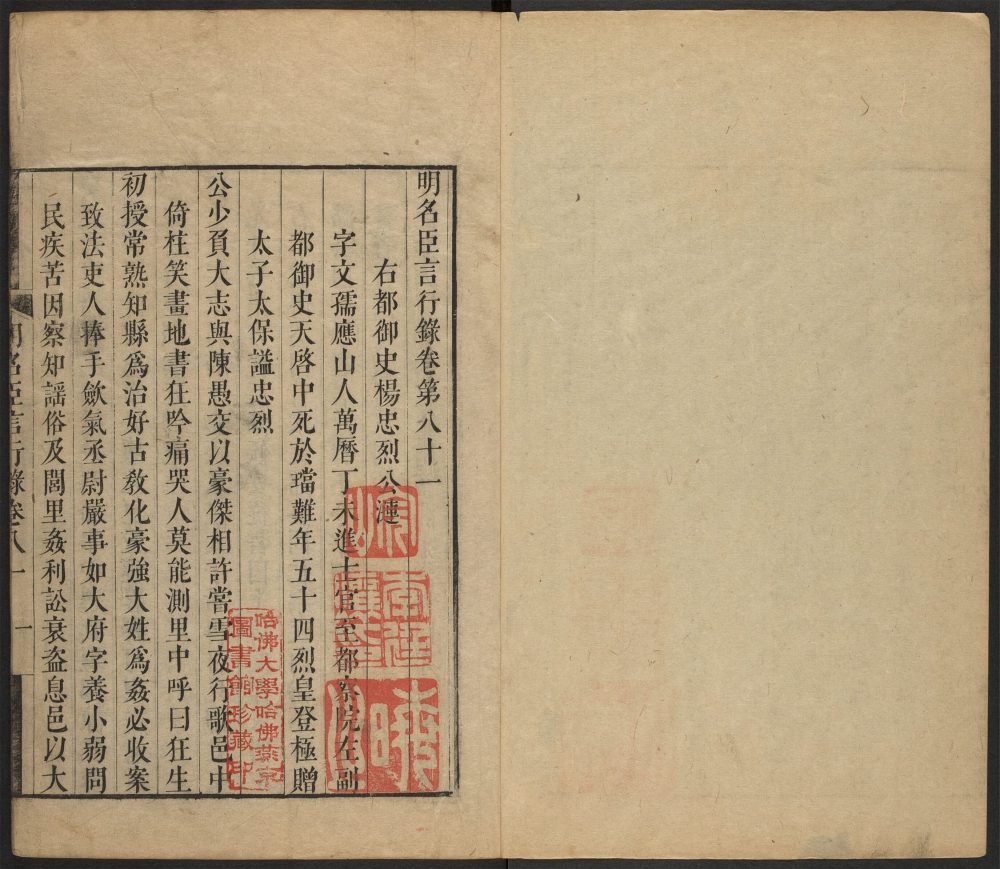 明名臣言行錄卷第八十一
右都御史楊忠烈公漣
字文孺應山人萬曆丁未進士官至都察院左副
都御史天啓中死於璫難年五十四烈皇登極贈
太子太保諡忠烈
公少負大志與陳愚交以豪傑相許嘗雪夜行歌邑中
倚柱笑畫地書狂吟痛哭人莫能測里中呼曰狂生
初授常熟知縣爲治好古敎化豪強大姓爲姦必收案
致法吏人捧手歛氣丞尉嚴事如大府字養小弱問
民疾苦因察知謡俗及閭里姦利訟衰盜息邑以大
明名臣言行錄卷八一
一
哈佛大學哈佛燕京
圖書館珍藏印